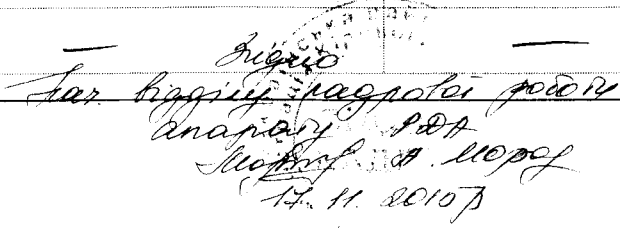 Згідно
Нач. відділу кадрової роботи
апарату РДА
А. Мороз
17. 11. 2010р